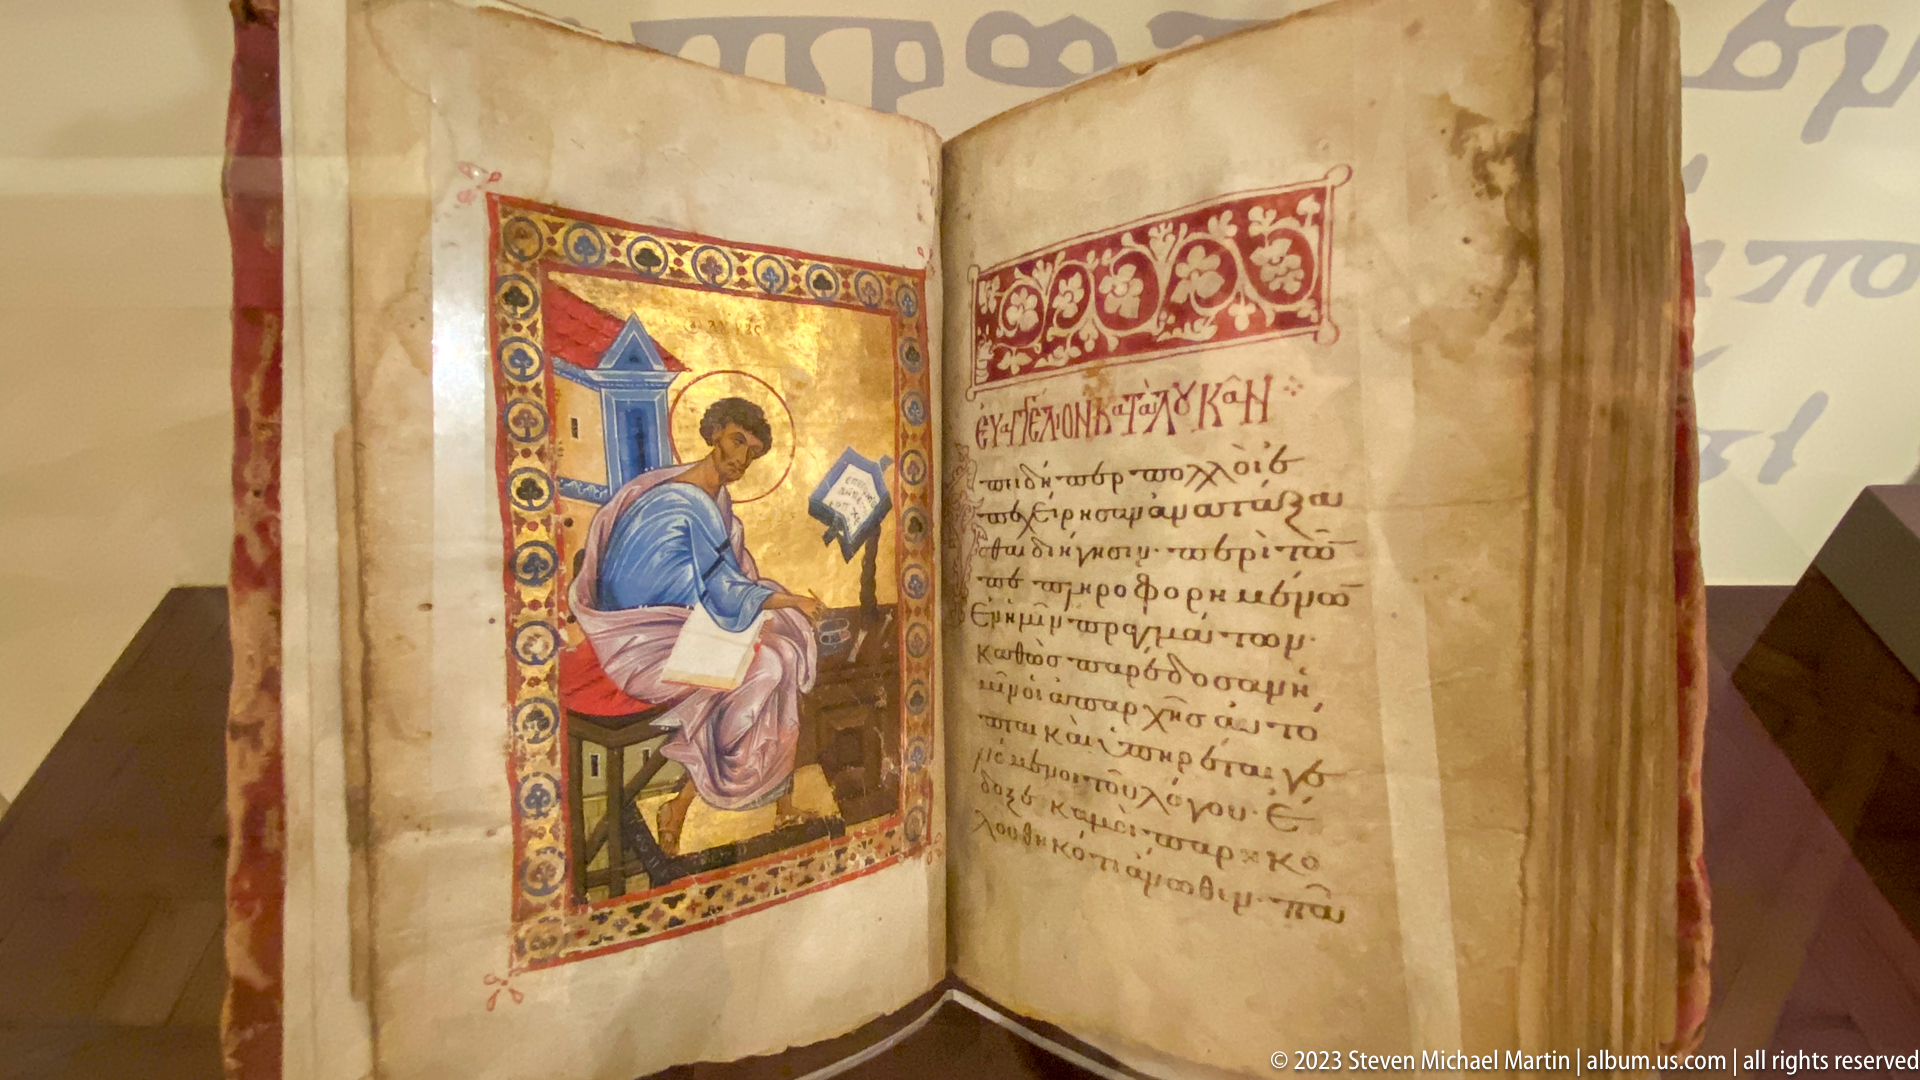 ἐυαγγέλιον κατὰ λουκᾶν
Ἐπειδήπερ πολλὸι ἐ
πεχείρησαν ἀνατάξα
σθαι διήγησιν· περὶ τῶ̅
πε πληροφορημένω̅
Ἐν ἡμῖν πραγμάτων·
καθὼς παρέδοσαν ἡ
μῖν ὁι ἀπαρχῆς ἀυτό
πται καὶ ὑπηρέται γε
νόμενοι τοῦ λόγου· Ἔ
δοξε καμὸι παρηκο
λουθηκότι ἄνωθεν· πᾶσι
© 2023 Steven Michael Martin | album.us.com | all rights reserved